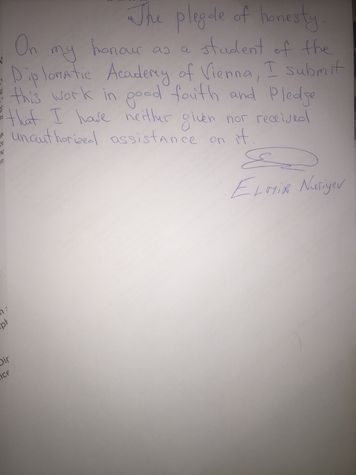 The plegde of honesty.
On my honour as a student of the
Diplomatic Academy of Vienna, I submit
this work in good faith and Pledge
that I have neither given nor received
unauthorized assistance on it.
Elmir Nuriyev